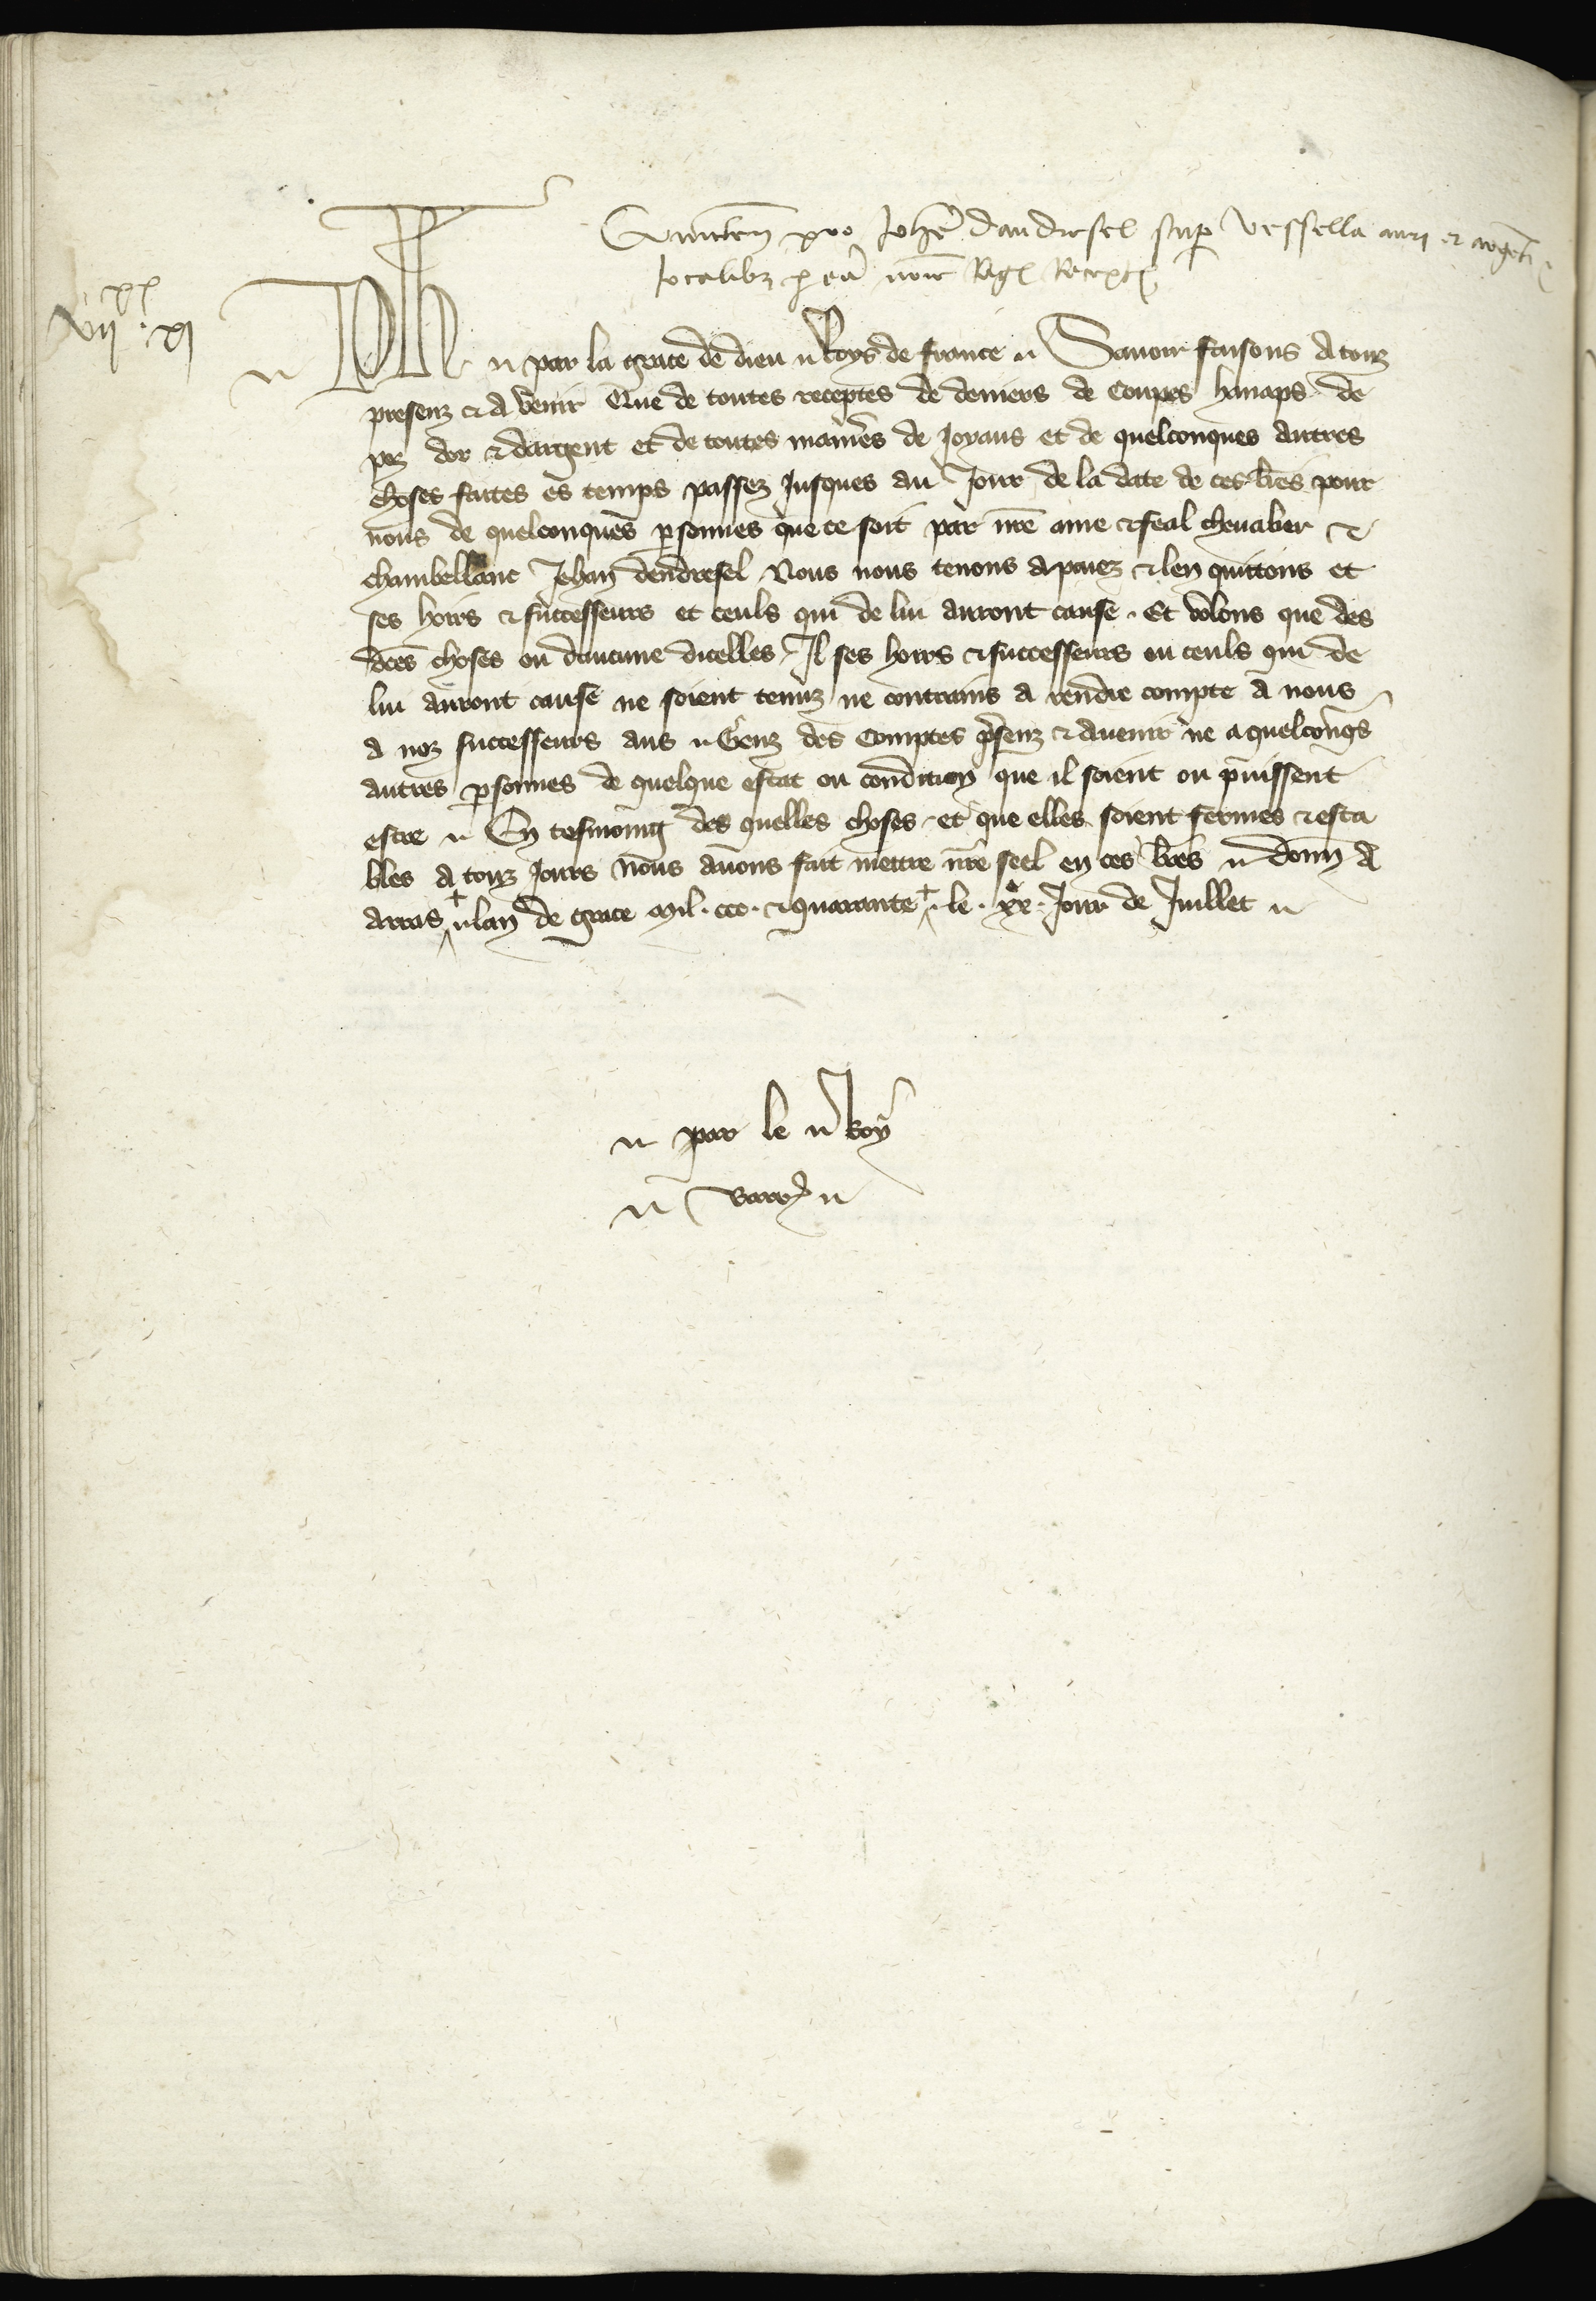 Quittan̄ pro Joh̄e dandresel sup̱ vessella auri et argenti
Jocalib; p̱ eū no͞ie Reg̱ Recepṯ
xx
vii . xi
Ph̄ par la grace de dieu Roys de france Sauoir faisons a touz
presenz & a venir Que de toutes receptes de deniers de Coupes hanaps de
poz dor & dargent et de toutes manie͛s de Joyaus et de quelconques autres
choses faites es temps passez Jusques au Jour de la date de ces lr̄es pour
nous de quelconques p̱sonnes que ce soit par nr̄e ame & feal cheualier &
chambellanc Jehan dendresel Nous nous tenons a paiez & len quittons et
ses hoirs & successeurs et ceuls qui de lui auront cause . Et volons que des
dc̄es choses ou daucune dicelles Il ses hoirs & successeurs ou ceuls qui de
lui auront cause ne soient tenuz ne contrains a rendre compte a nous
a noz successeurs aus Genz des Comptes p͛senz & auenir ne a quelconq̄s
autres p̱sonnes de quelque estat ou condicion que il soient ou puissent
estre En tesmoing des quelles choses et que elles soient fermes & esta
bles a touz Jours Nous auons fait mettre nr̄e seel en ces lr̄es Donn̄ a
arras lan de grace mil . ccc . & quarante . le . xx͛ . Jour de Juillet
par le Roy